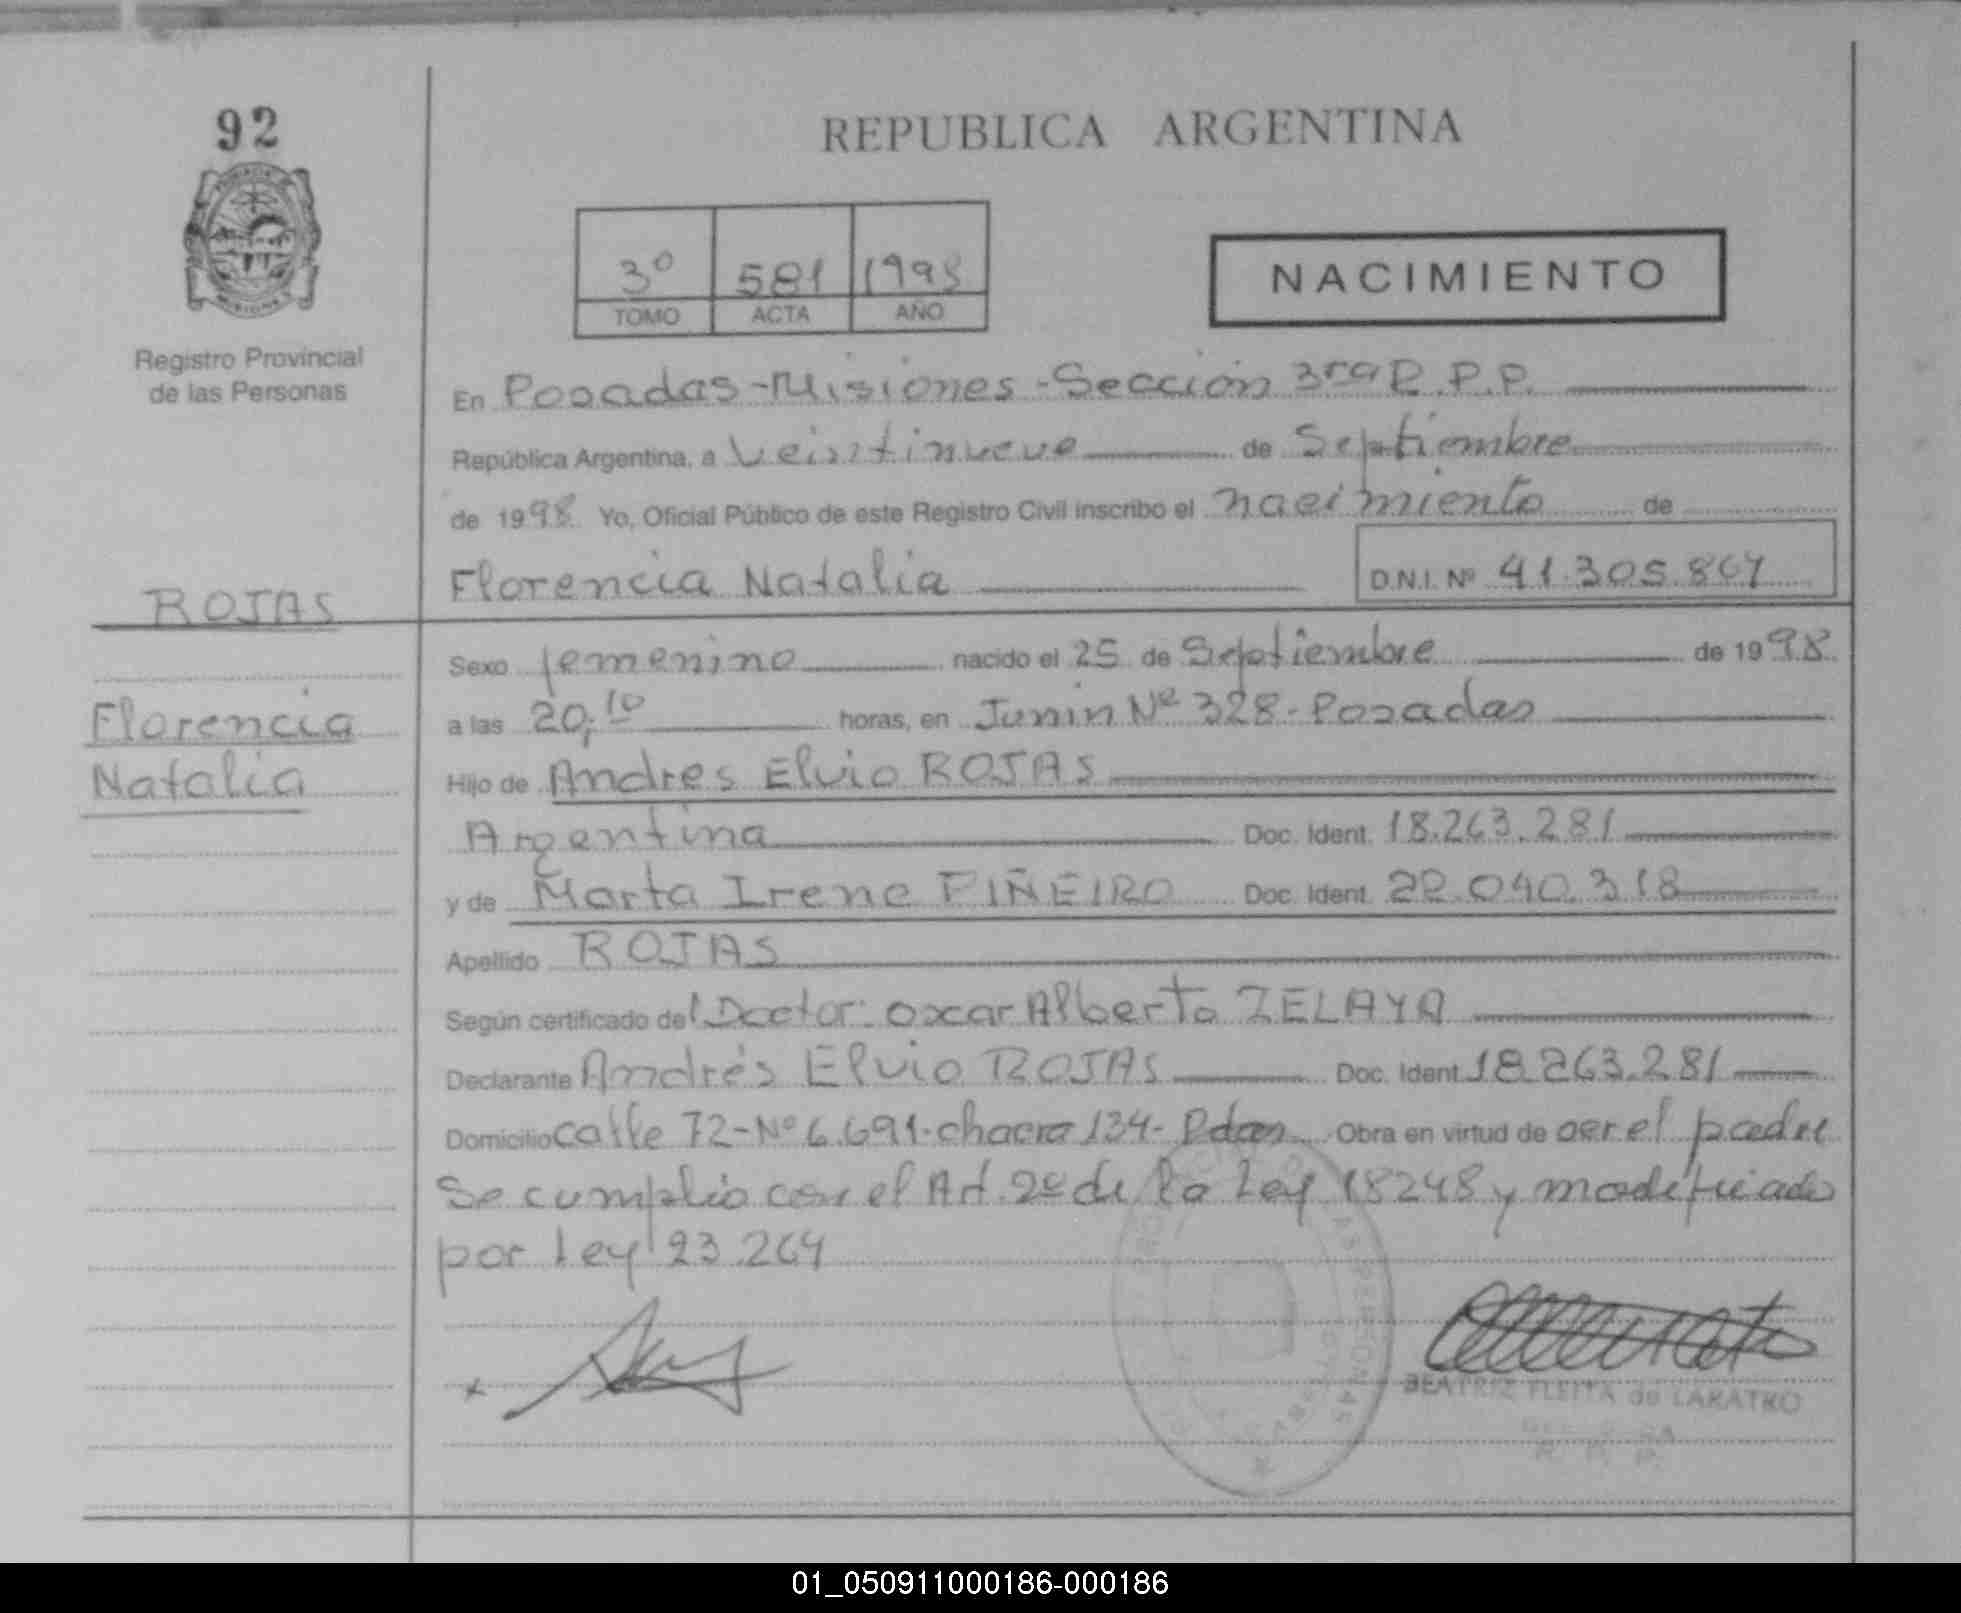 92
REPUBLICA ARGENTINA
3º 581 1998
TOMO ACTA AÑO
NACIMIENTO
Registro Provincial
de las Personas
En Posadas-Misiones-Sección 3ra R.P.P.
República Argentina, a veintinueve de Septiembre
de 1998 Yo, Oficial Público de este Registro Civil inscribo el nacimiento de
Florencia Natalia D.N.I. Nº 41.305.864
ROJAS
Sexo femenino nacido el 25 de Septiembre de 1998
Florencia
a las 20,10 horas, en Junin Nº 328-Posadas
Natalia
Hijo de Andres Elvio ROJAS
Argentina Doc. Ident. 18.263.281
y de Marta Irene PIÑEIRO Doc. Ident. 22.040.318
Apellido ROJAS
Según certificado del Doctor: Oscar Alberto ZELAYA
Declarante Andrés Elvio ROJAS Doc. Ident 18.263.281
Domicilio calle 72-Nº 6.691-chacra 134-Pdas Obra en virtud de ser el padre
Se cumplio con el Art. 2º de la Ley 18248 y modificado
por Ley 23.264
BEATRIZ FLEITA de LAKATKO
01_050911000186-000186